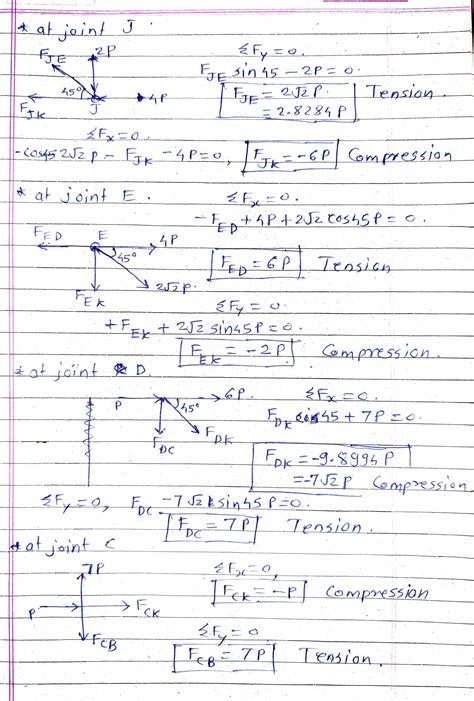 * at joint J.
2P
F_JE
45°
J
4P
F_JK
ΣFy=0.
F_JE sin45 - 2P=0.
F_JE = 2√2P
= 2.8284P
Tension.
ΣFx=0.
-cos45 2√2P - F_JK - 4P=0,
F_JK = -6P
Compression
* at joint E.
F_ED
E
4P
45°
2√2P.
F_EK
ΣFx=0.
-F_ED + 4P + 2√2 cos45P = 0.
F_ED = 6P
Tension
ΣFy = 0.
+F_EK + 2√2 sin45P=0.
F_EK = -2P
Compression.
* at joint D.
P
6P.
45°
F_DK
F_DC
ΣFx=0.
F_DK cos45 + 7P=0.
F_DK = -9.8994P
= -7√2P
Compression.
ΣFy=0, F_DC -7√2 sin45P=0.
F_DC = 7P
Tension.
* at joint C
7P
P
F_CK
F_CB
ΣFx=0,
F_CK = -P
Compression
ΣFy=0
F_CB = 7P
Tension.